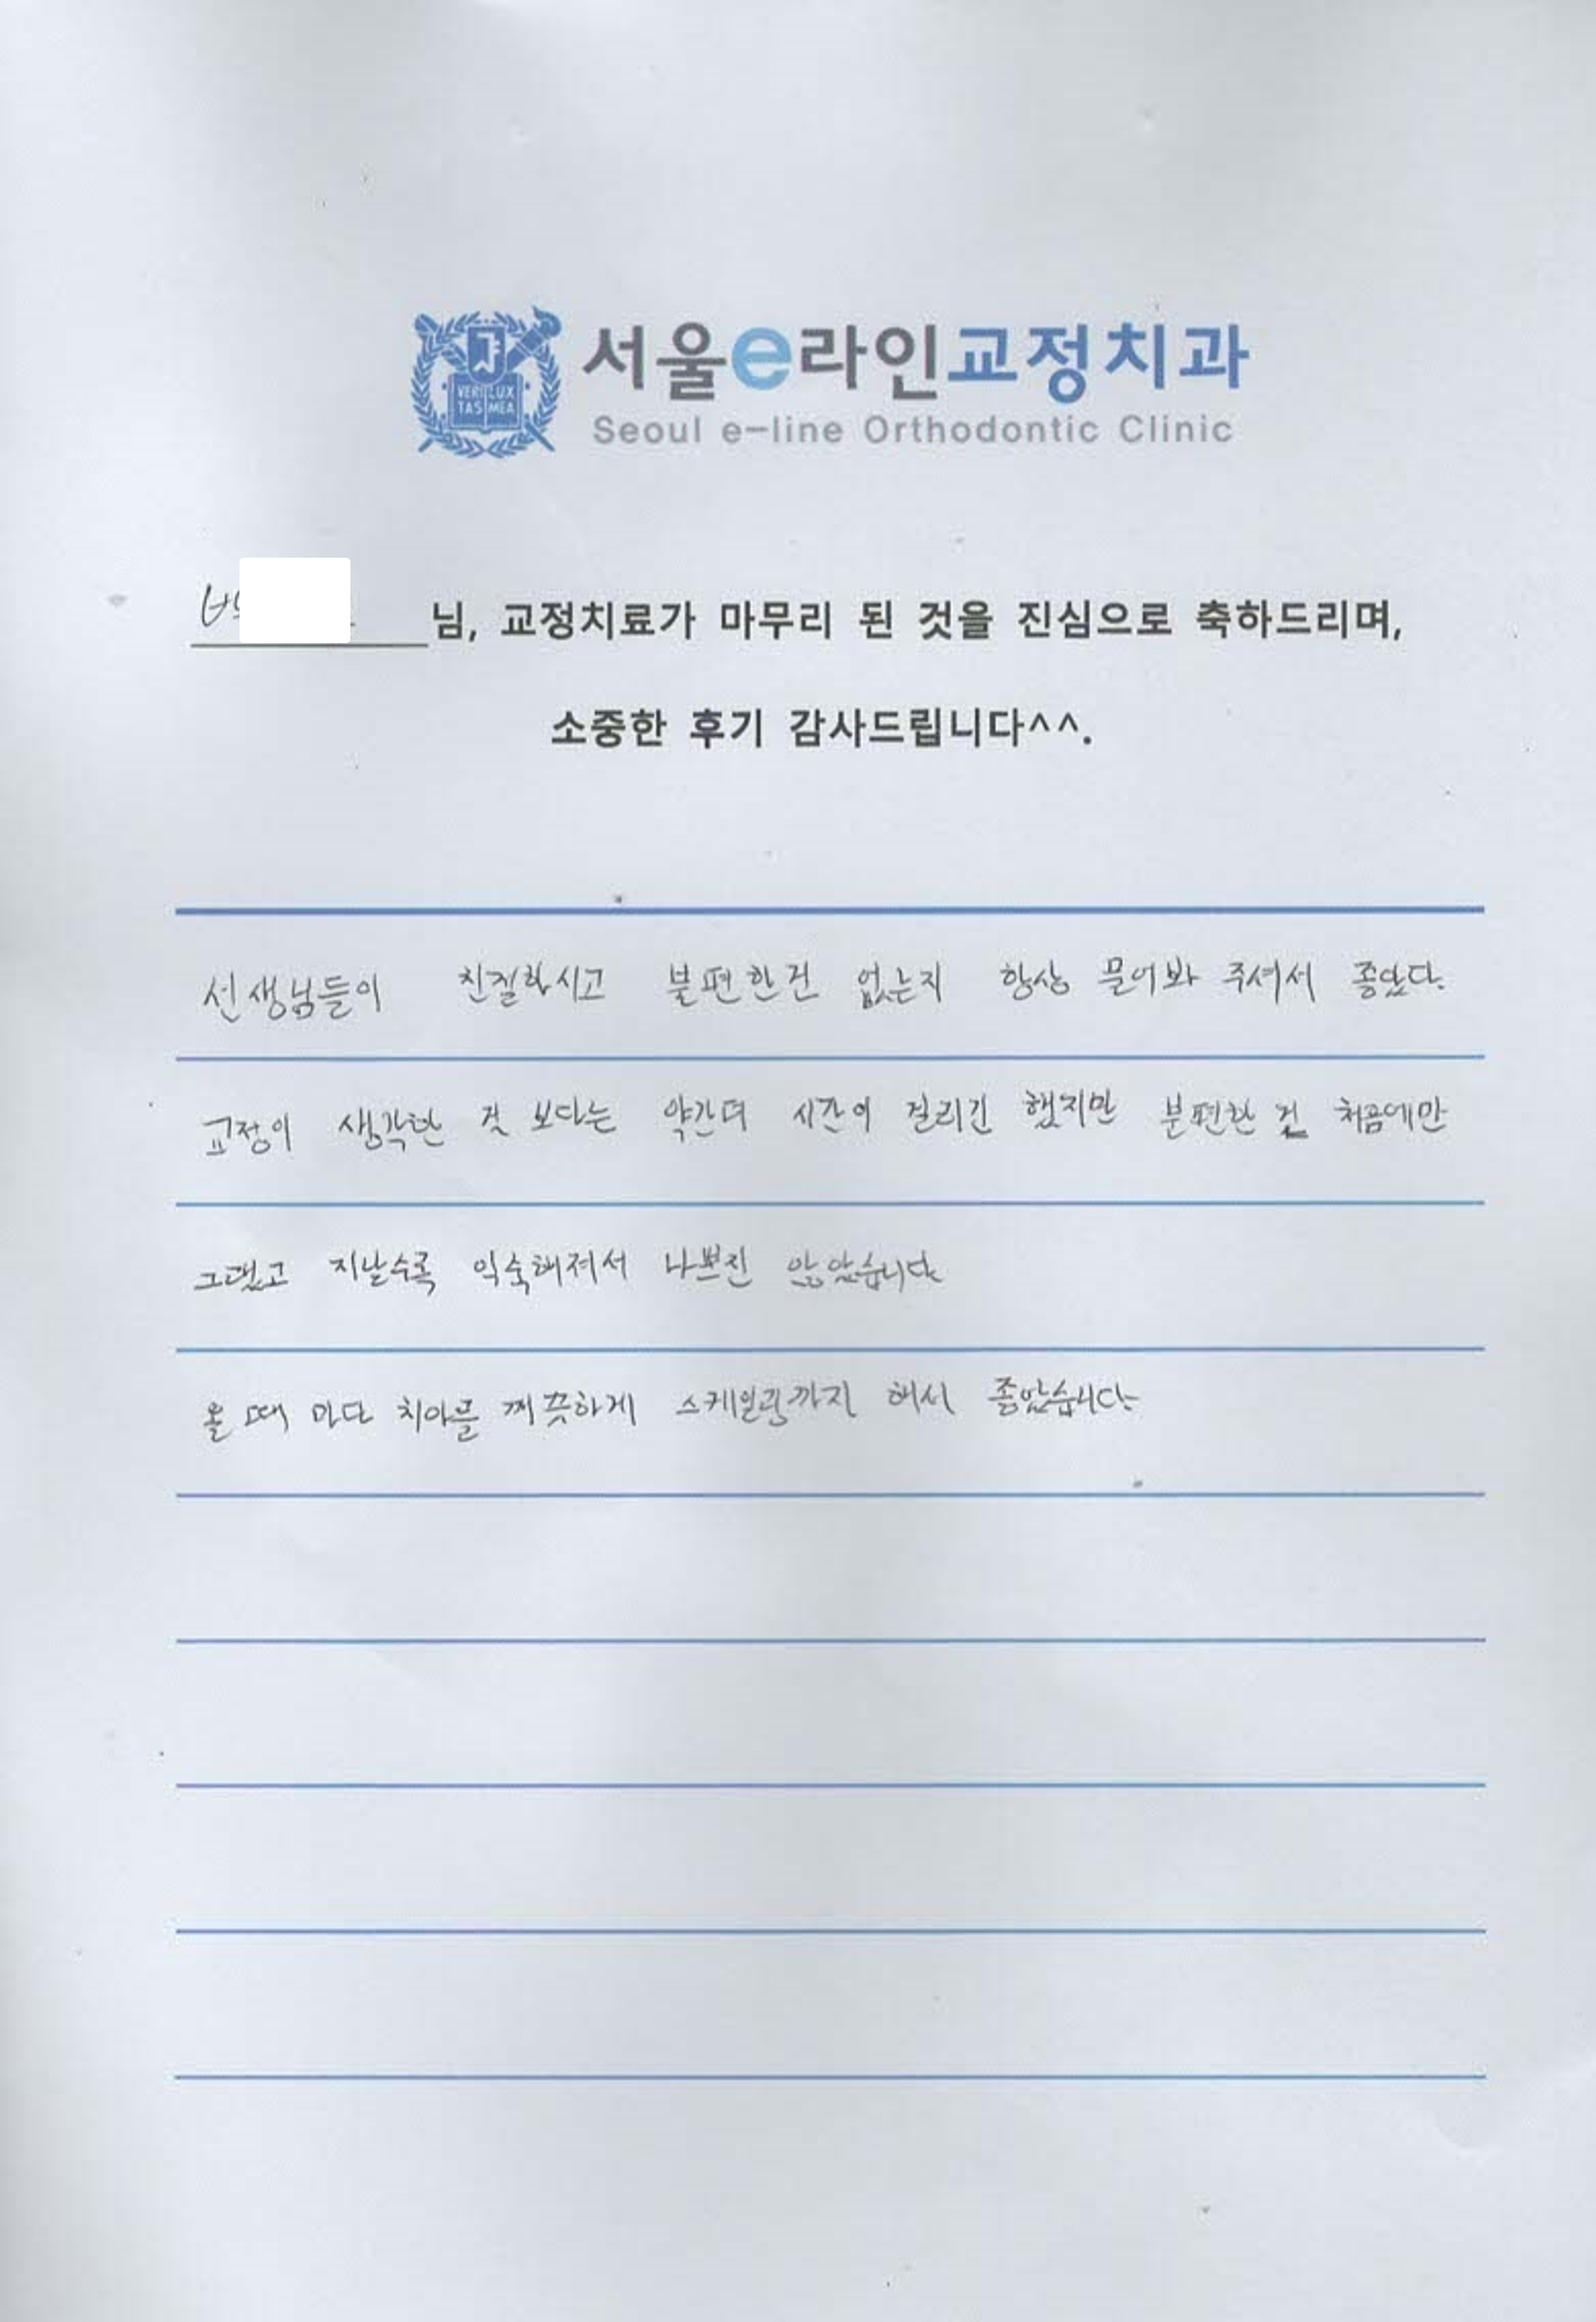 VERI LUX
TAS MEA
서울e라인교정치과
Seoul e-line Orthodontic Clinic
님, 교정치료가 마무리 된 것을 진심으로 축하드리며,
소중한 후기 감사드립니다^^.
선생님들이 친절하시고 불편한건 없는지 항상 물어봐 주셔서 좋았다.
교정이 생각한 것 보다는 약간더 시간이 걸리긴 했지만 불편한 건 처음에만
그랬고 지날수록 익숙해져서 나쁘진 않았습니다
올 때 마다 치아를 깨끗하게 스케일링까지 해서 좋았습니다